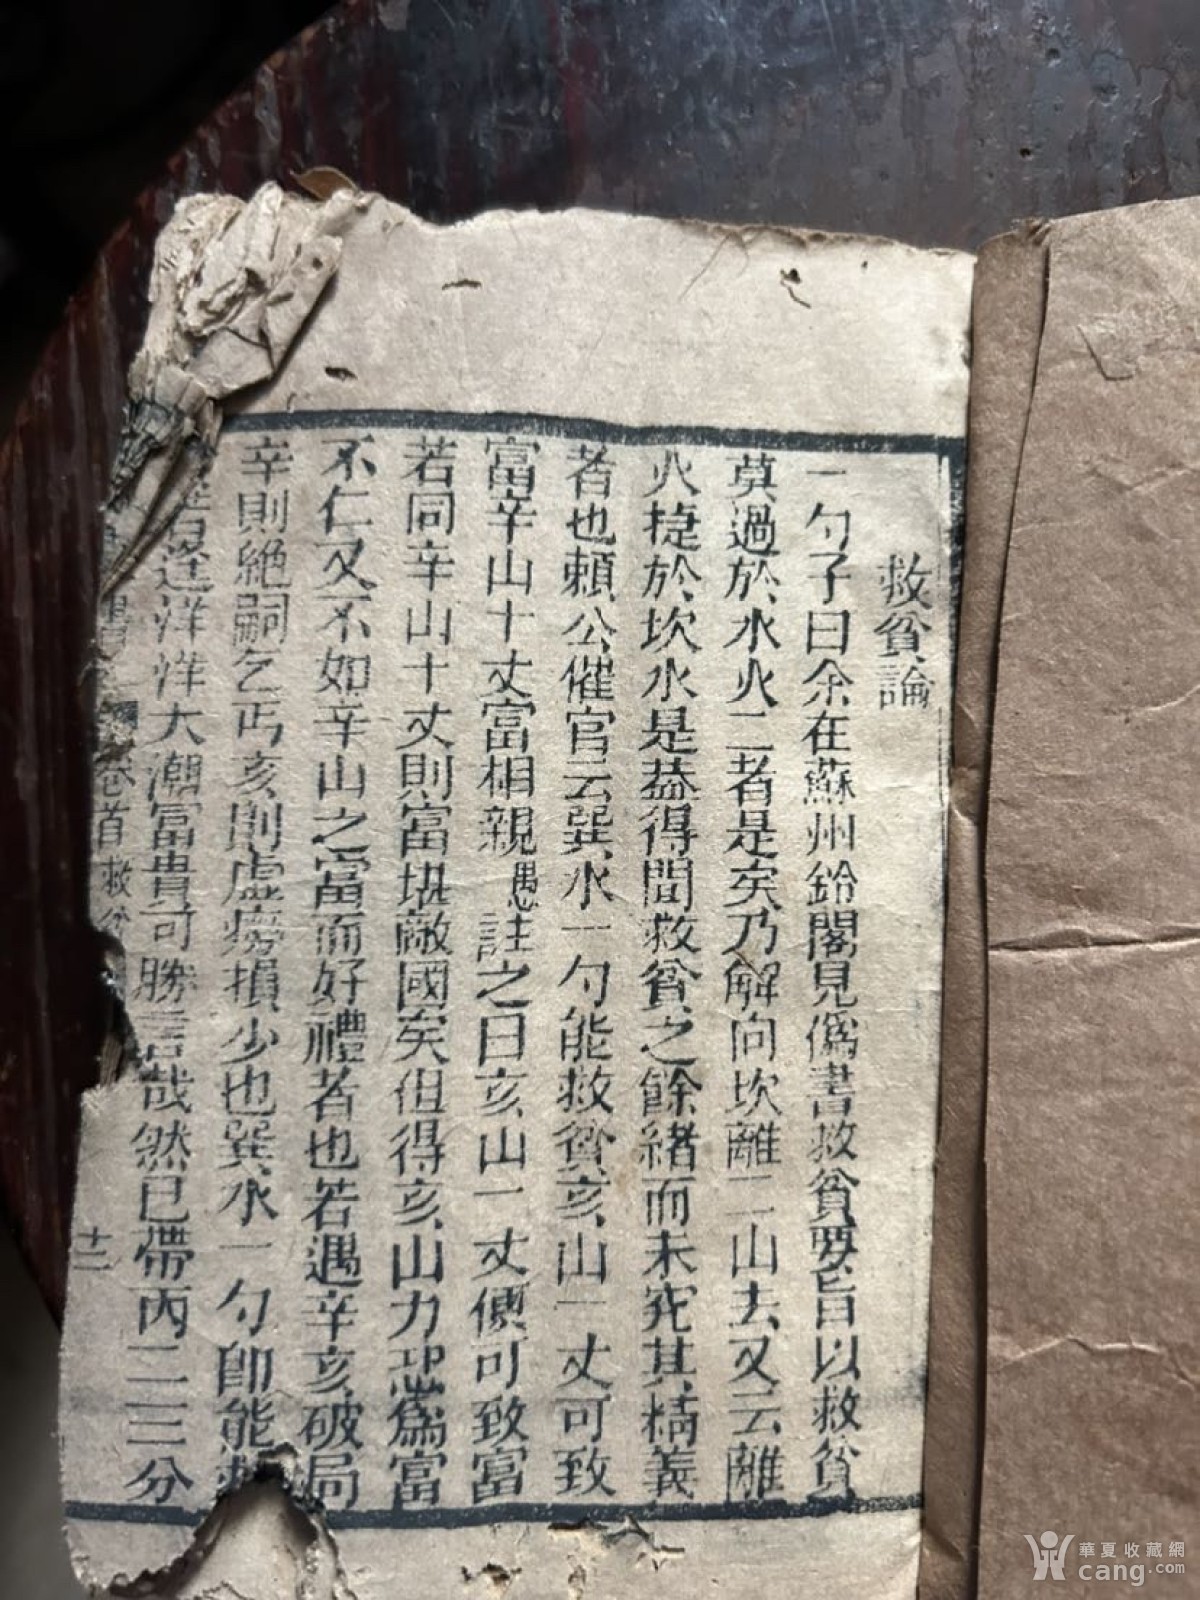 救貧論
一勺子曰余在蘇州鈴閣見僞書救貧要旨以救貧
莫過於水火二者是矣乃解向坎離二山去又云離
火捷於坎水是益得聞救貧之餘緒而未究其精義
者也賴公催官云巽水一勺能救貧亥山一丈可致
富辛山十丈富相親愚註之曰亥山一丈便可致富
若同辛山十丈則富堪敵國矣但得亥山力恐爲富
不仁又不如辛山之富而好禮者也若遇辛亥破局
辛則絕嗣乞丐亥則虛癆損少也巽水一勺即能救
逢洋洋大潮富貴可勝言哉然已帶丙二三分
卷首 救
十二
華夏收藏網
cang.com